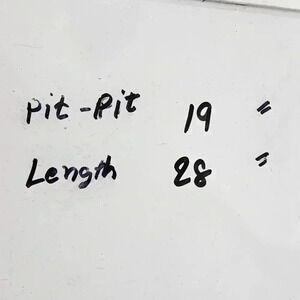 Pit-Pit 19 "
Length 28 "